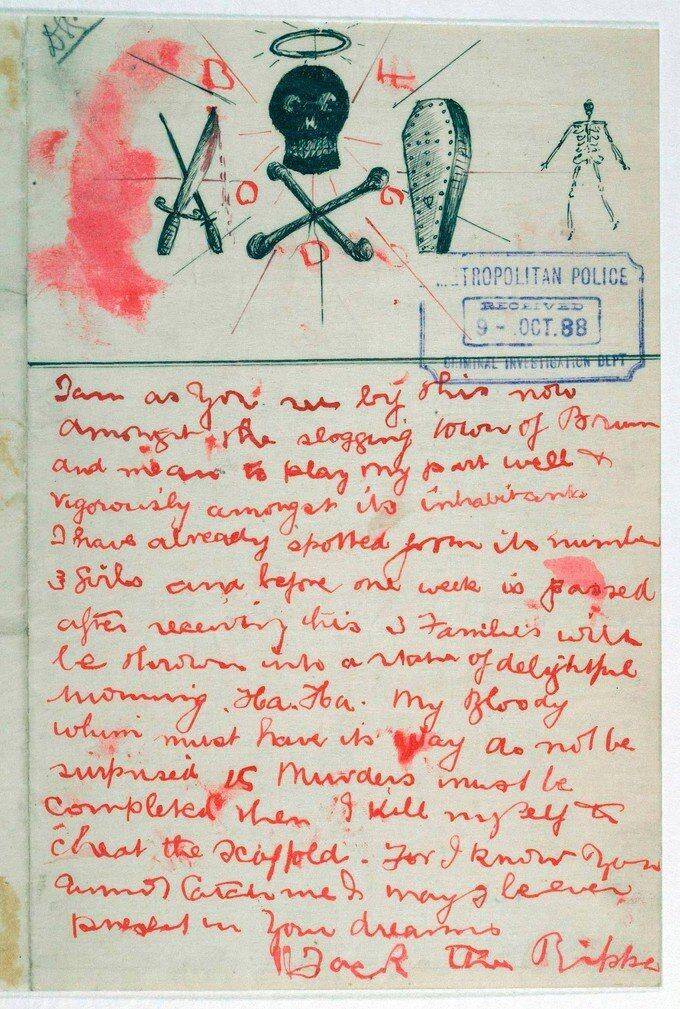 B E
O G
D
METROPOLITAN POLICE
RECEIVED
9 - OCT. 88
CRIMINAL INVESTIGATION DEPT
I am as you see by this now
amongst the slogging town of Brum
and mean to play my part well &
vigorously amongst its inhabitants
I have already spotted from its number
3 Girls and before one week is passed
after receiving this 3 Families will
be thrown into a state of delightful
mourning. Ha. Ha. My Bloody
whim must have its way do not be
surprised 15 Murders must be
completed then I kill myself &
cheat the scaffold. For I know you
cannot Catch me & may I be ever
present in Your dreams
Jack the Rippe